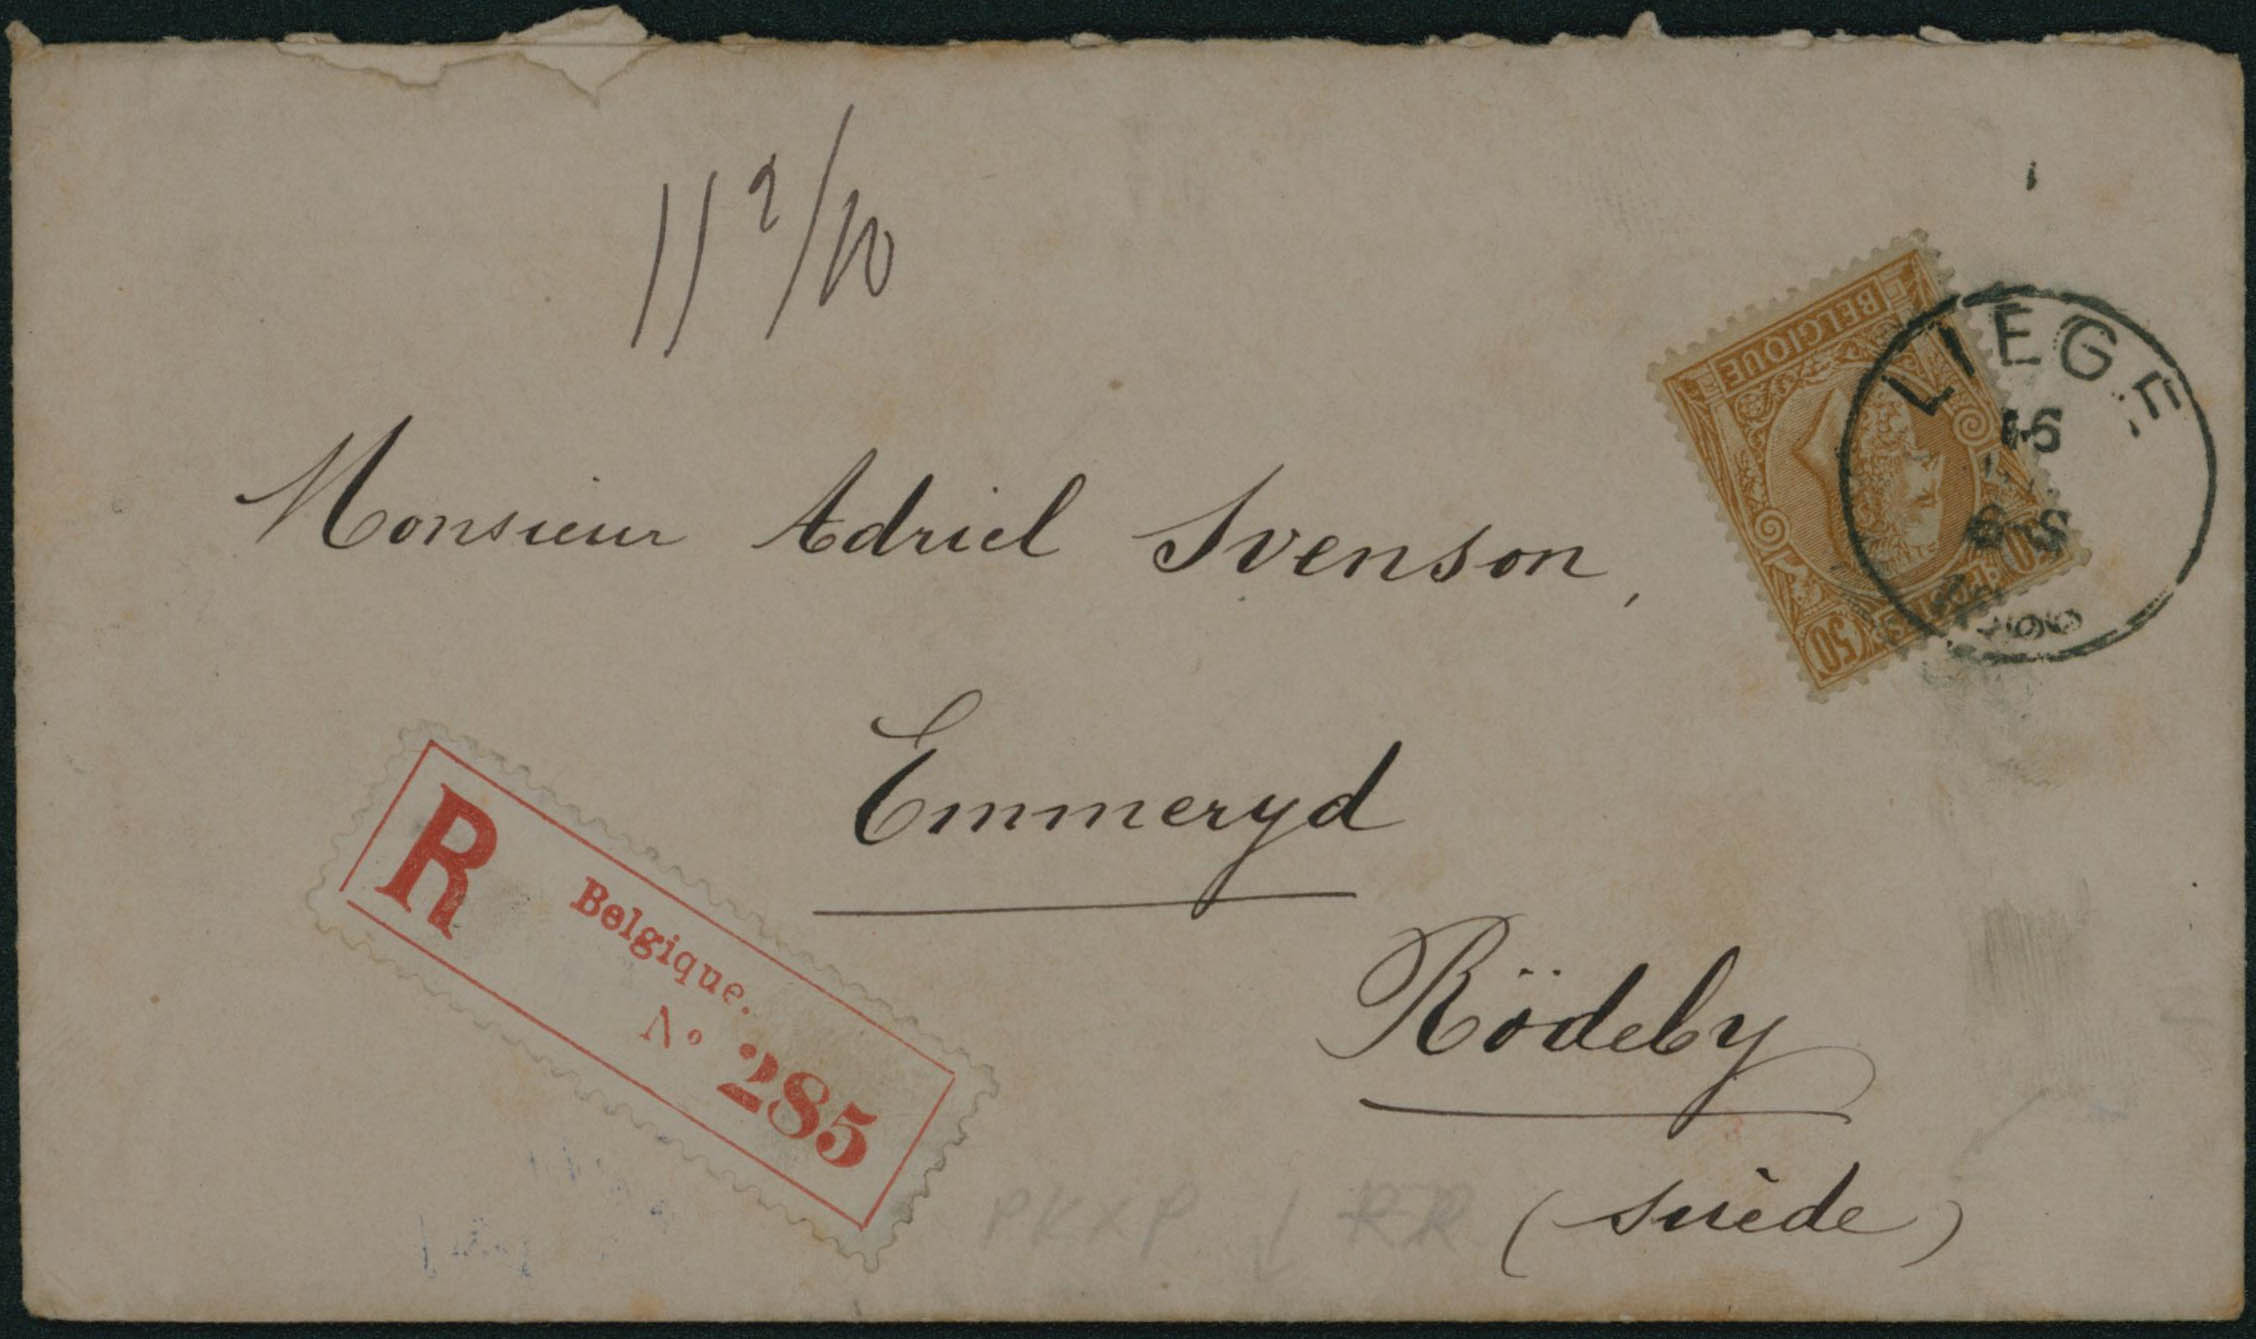 11 2/10
BELGIQUE
LIEGE
50
Monsieur Adriel Svenson,
Emmeryd
Rödeby
(Suède)
R
Belgique.
N° 285
PKXP RR